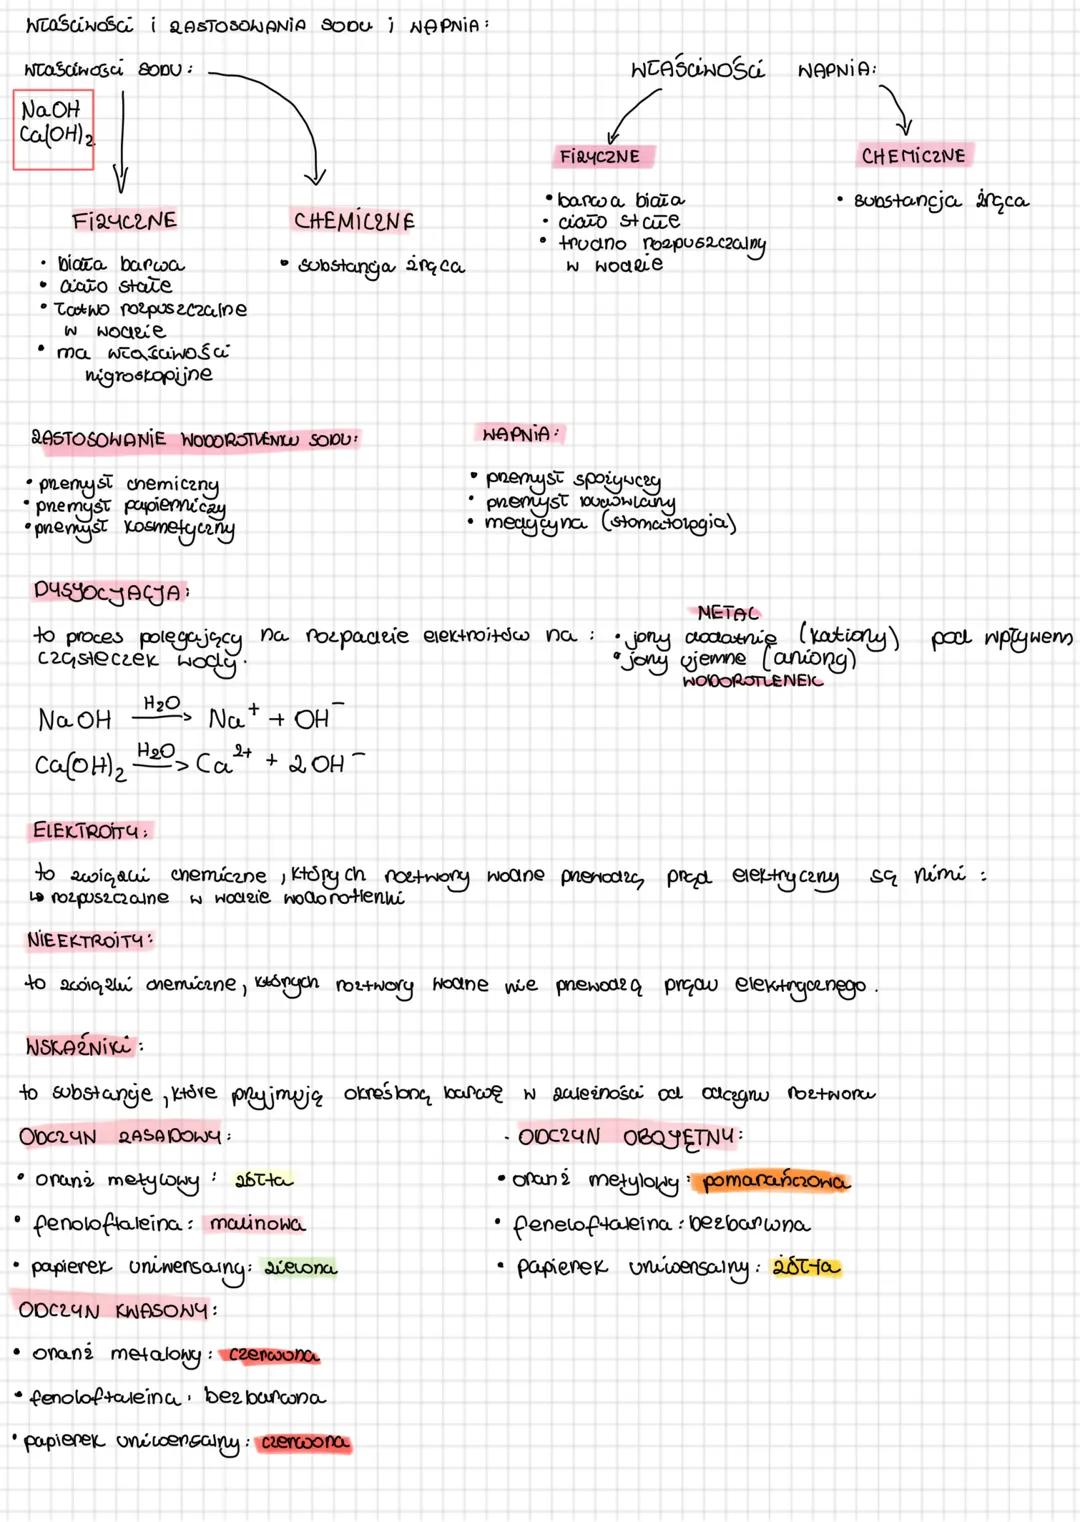 właściwości i zastosowania sodu i wapnia:
właściwości sodu:
NaOH
Ca(OH)2
FIZYCZNE
• biała barwa
• ciało stałe
• łatwo rozpuszczalne
w wodzie
• ma właściwości
higroskopijne
CHEMICZNE
• substancja żrąca
WŁAŚCIWOŚCI WAPNIA:
FIZYCZNE
• barwa biała
• ciało stałe
• trudno rozpuszczalny
w wodzie
CHEMICZNE
• substancja żrąca
ZASTOSOWANIE WODOROTLENKU SODU:
• przemysł chemiczny
• przemysł papierniczy
• przemysł kosmetyczny
WAPNIA:
• przemysł spożywczy
• przemysł budowlany
• medycyna (stomatologia)
DYSYOCJACJA:
to proces polegający na rozpadzie elektroitów na : • jony dodatnie (kationy) pod wpływem
METAL
cząsteczek wody. • jony ujemne (aniony)
WODOROTLENEK
NaOH H2O→ Na+ + OH−
Ca(OH)2 H2O→ Ca2+ + 2OH−
ELEKTROITY:
to związki chemiczne, których roztwory wodne przewodzą prąd elektryczny są nimi :
↳ rozpuszczalne w wodzie wodorotlenki
NIEEKTROITY:
to związki chemiczne, których roztwory wodne nie przewodzą prądu elektrycznego.
WSKAŹNIKI:
to substancje, które przyjmują określoną barwę w zależności od odczynu roztworu
ODCZYN ZASADOWY:
• oranż metylowy : żółta
• fenoloftaleina: malinowa
• papierek uniwersalny: zielona
- ODCZYN OBOJĘTNY:
• oranż metylowy: pomarańczowa
• feneloftaleina: bezbarwna
• papierek uniwersalny: żółta
ODCZYN KWASOWY:
• oranż metalowy: czerwona
• fenoloftaleina: bezbarwna
• papierek uniwersalny: czerwona